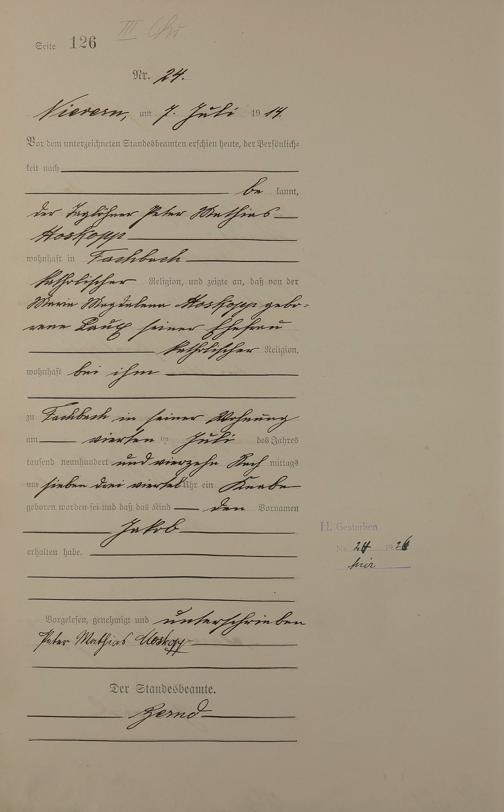 Seite 126
Nr. 24.
Nievern, am 7. Juli 1914.
Vor dem unterzeichneten Standesbeamten erschien heute, der Persönlich-
keit nach
be kannt,
der Taglöhner Peter Mathias
Hoskopp
wohnhaft in Fachbach
katholischer Religion, und zeigte an, daß von der
Maria Magdalena Hoskopp gebo-
rene Laux seiner Ehefrau
katholischer Religion,
wohnhaft bei ihm
zu Fachbach in seiner Wohnung
am vierten Juli des Jahres
tausend neunhundert und vierzehn Nach mittags
um sieben drei viertel Uhr ein Knabe
geboren worden sei und daß das Kind den Vornamen
Jakob
H. Gestorben
erhalten habe.
No. 24 1926
hier
Vorgelesen, genehmigt und unterschrieben
Peter Mathias Hoskopp
Der Standesbeamte.